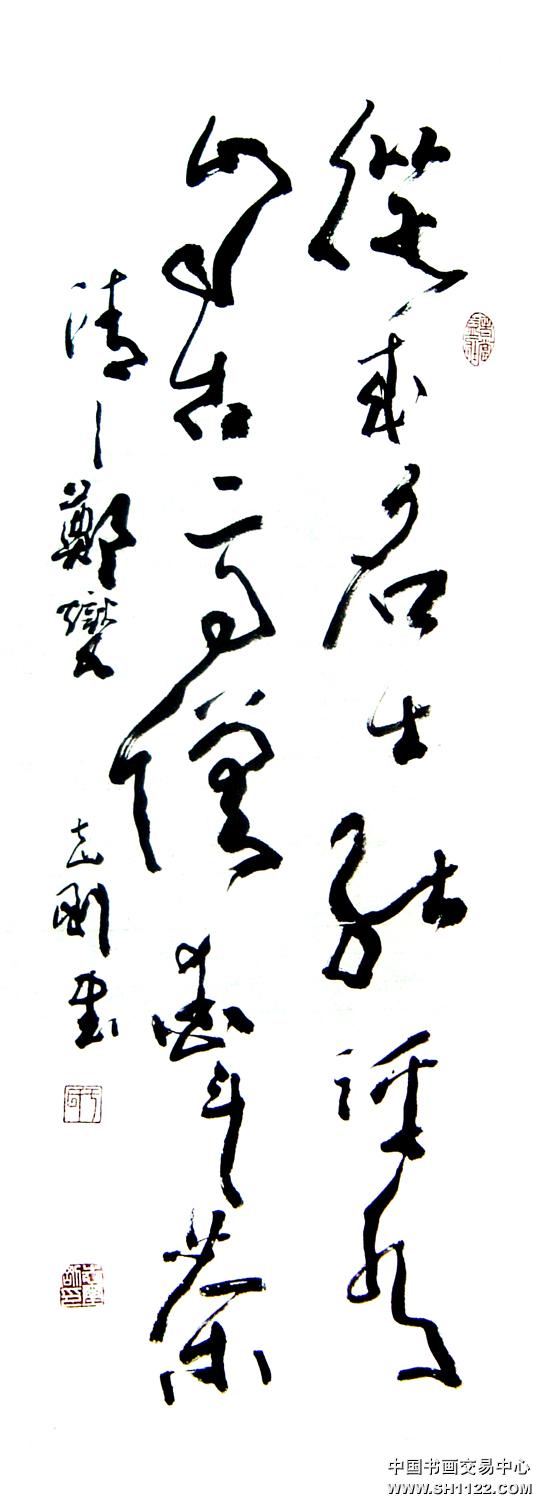 從来名士能評水
自古高僧愛斗茶
清 鄭燮 志剛書
中国书画交易中心
www.SH1122.COM